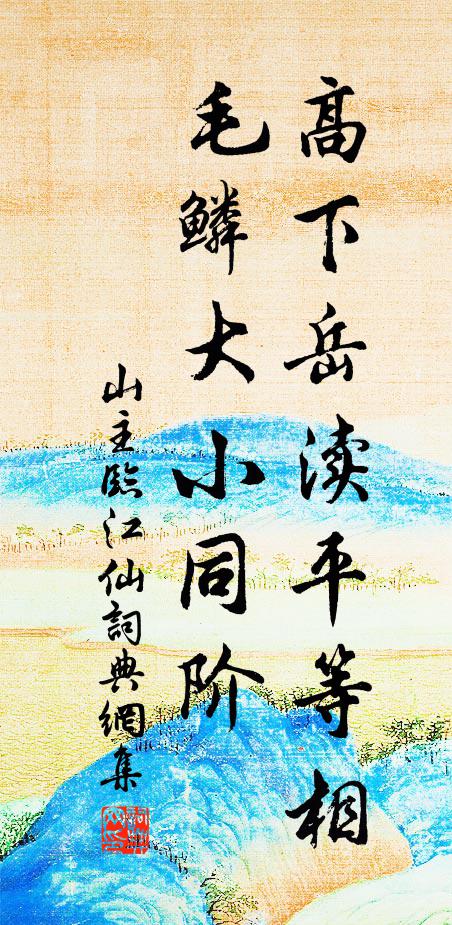 高下岳渎平等相
毛鳞大小同阶
山主臨江仙詞典網集